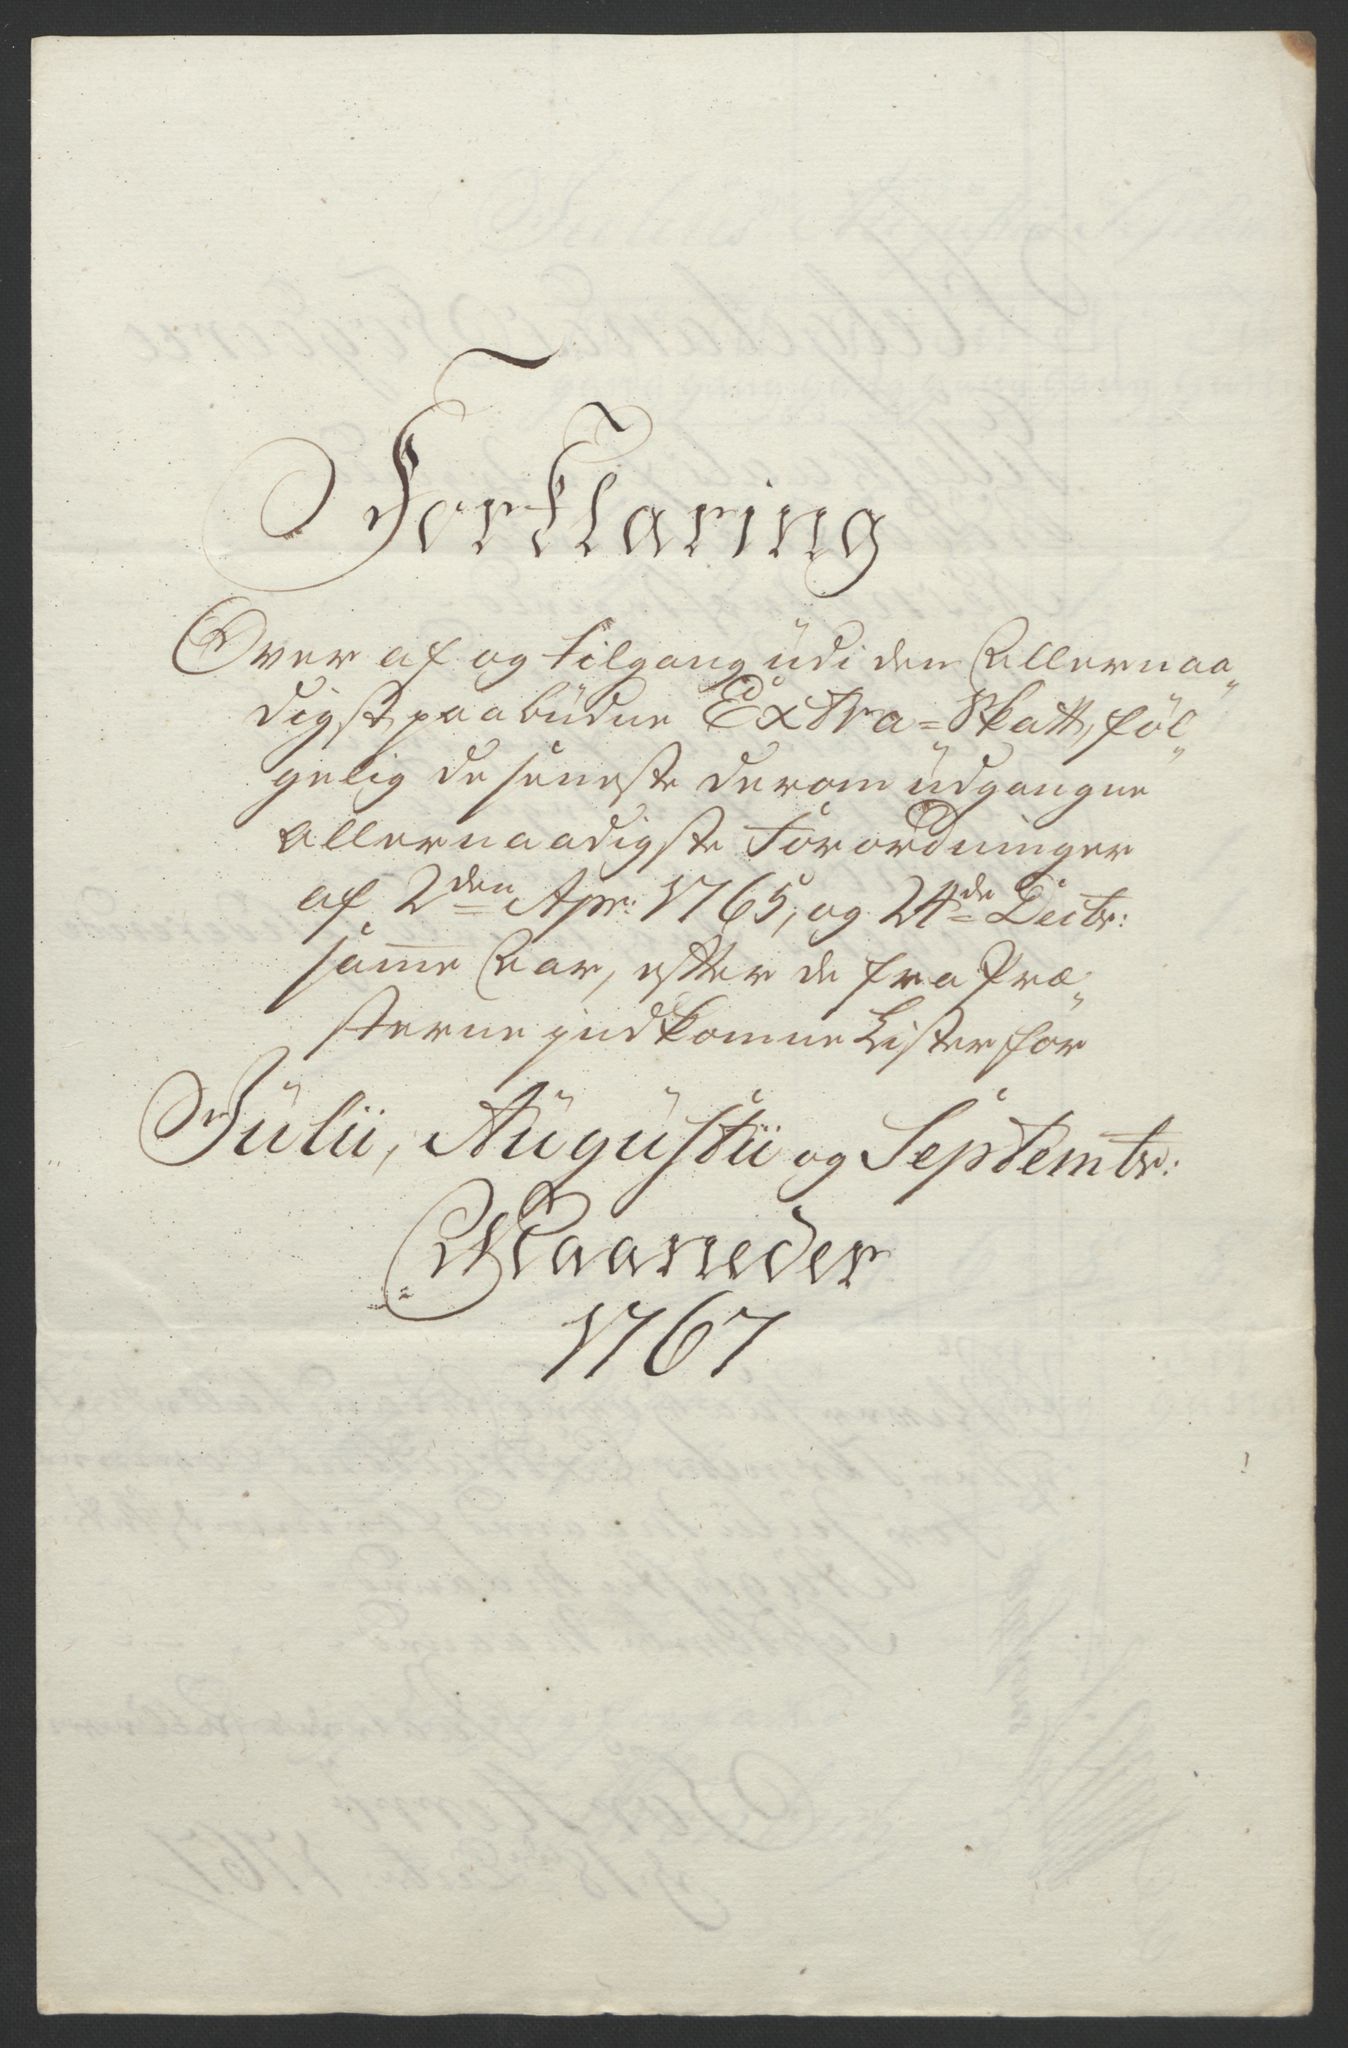 Forklaring
Over af og tilgang üdi den Allernaa„
digst paabüdne Extra=Skatt, føl„
gelig de seneste derom üdgangne
allernaadigste Forordninger
af 2den Apr: 1765, og 24de Decbr:
samme Aar, efter de fra Præ„
sterne indkomne Lister for
Jülii, Augüstii og Septembr:
Maaneder
1767